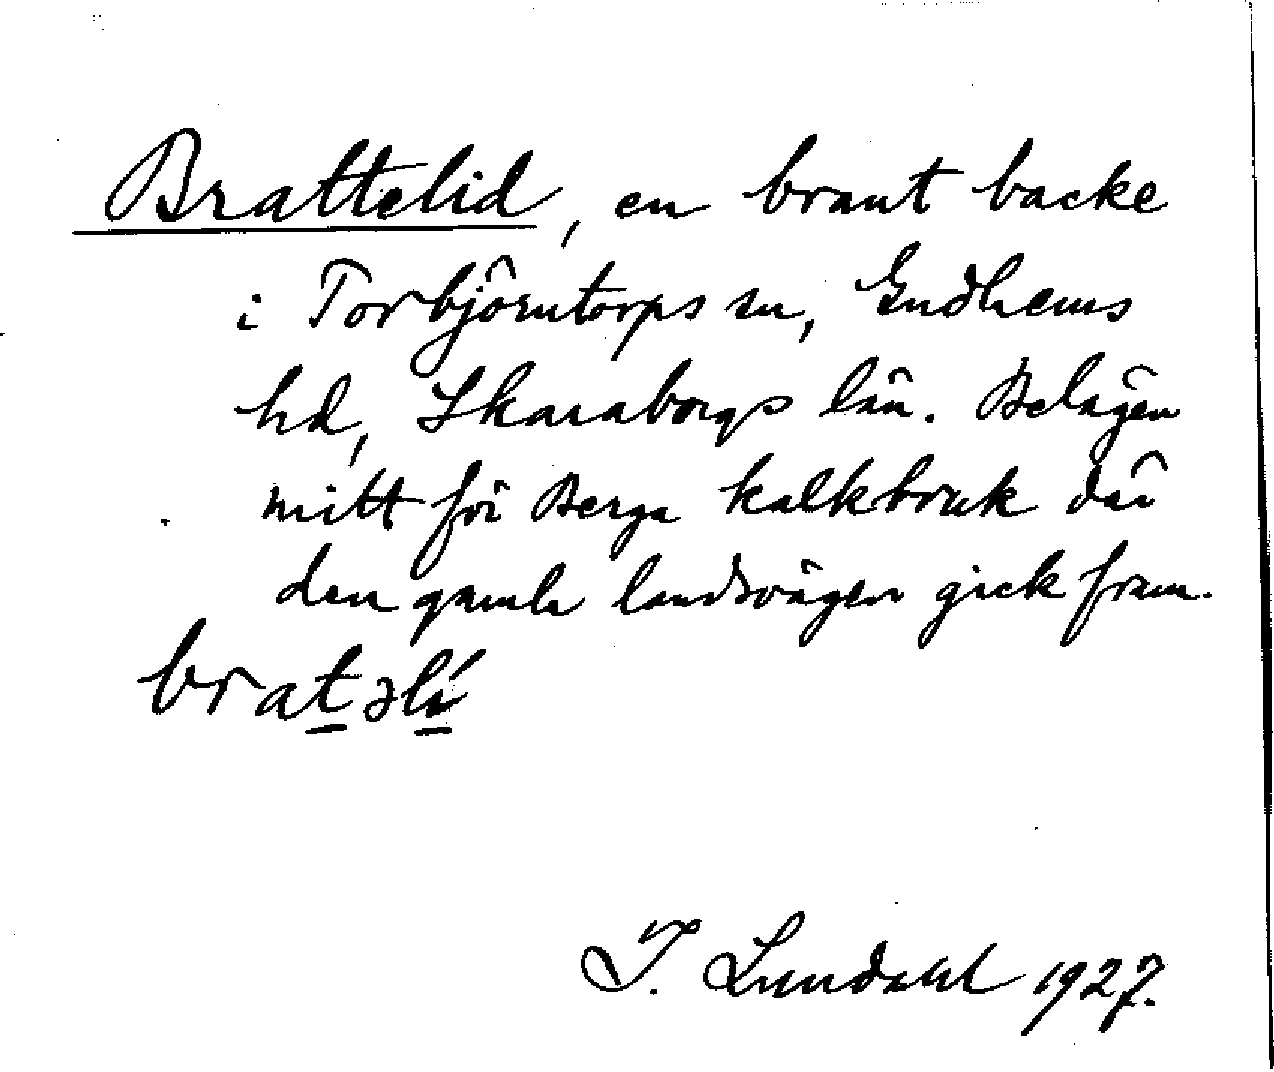 Brattelid, en brant backe
i Torbjörntorps sn, Gudhems
hd, Skaraborgs län. Belägen
mitt för Berga kalkbruk där
den gamla landsvägen gick fram.
bratəlí
I. Lundahl 1927.